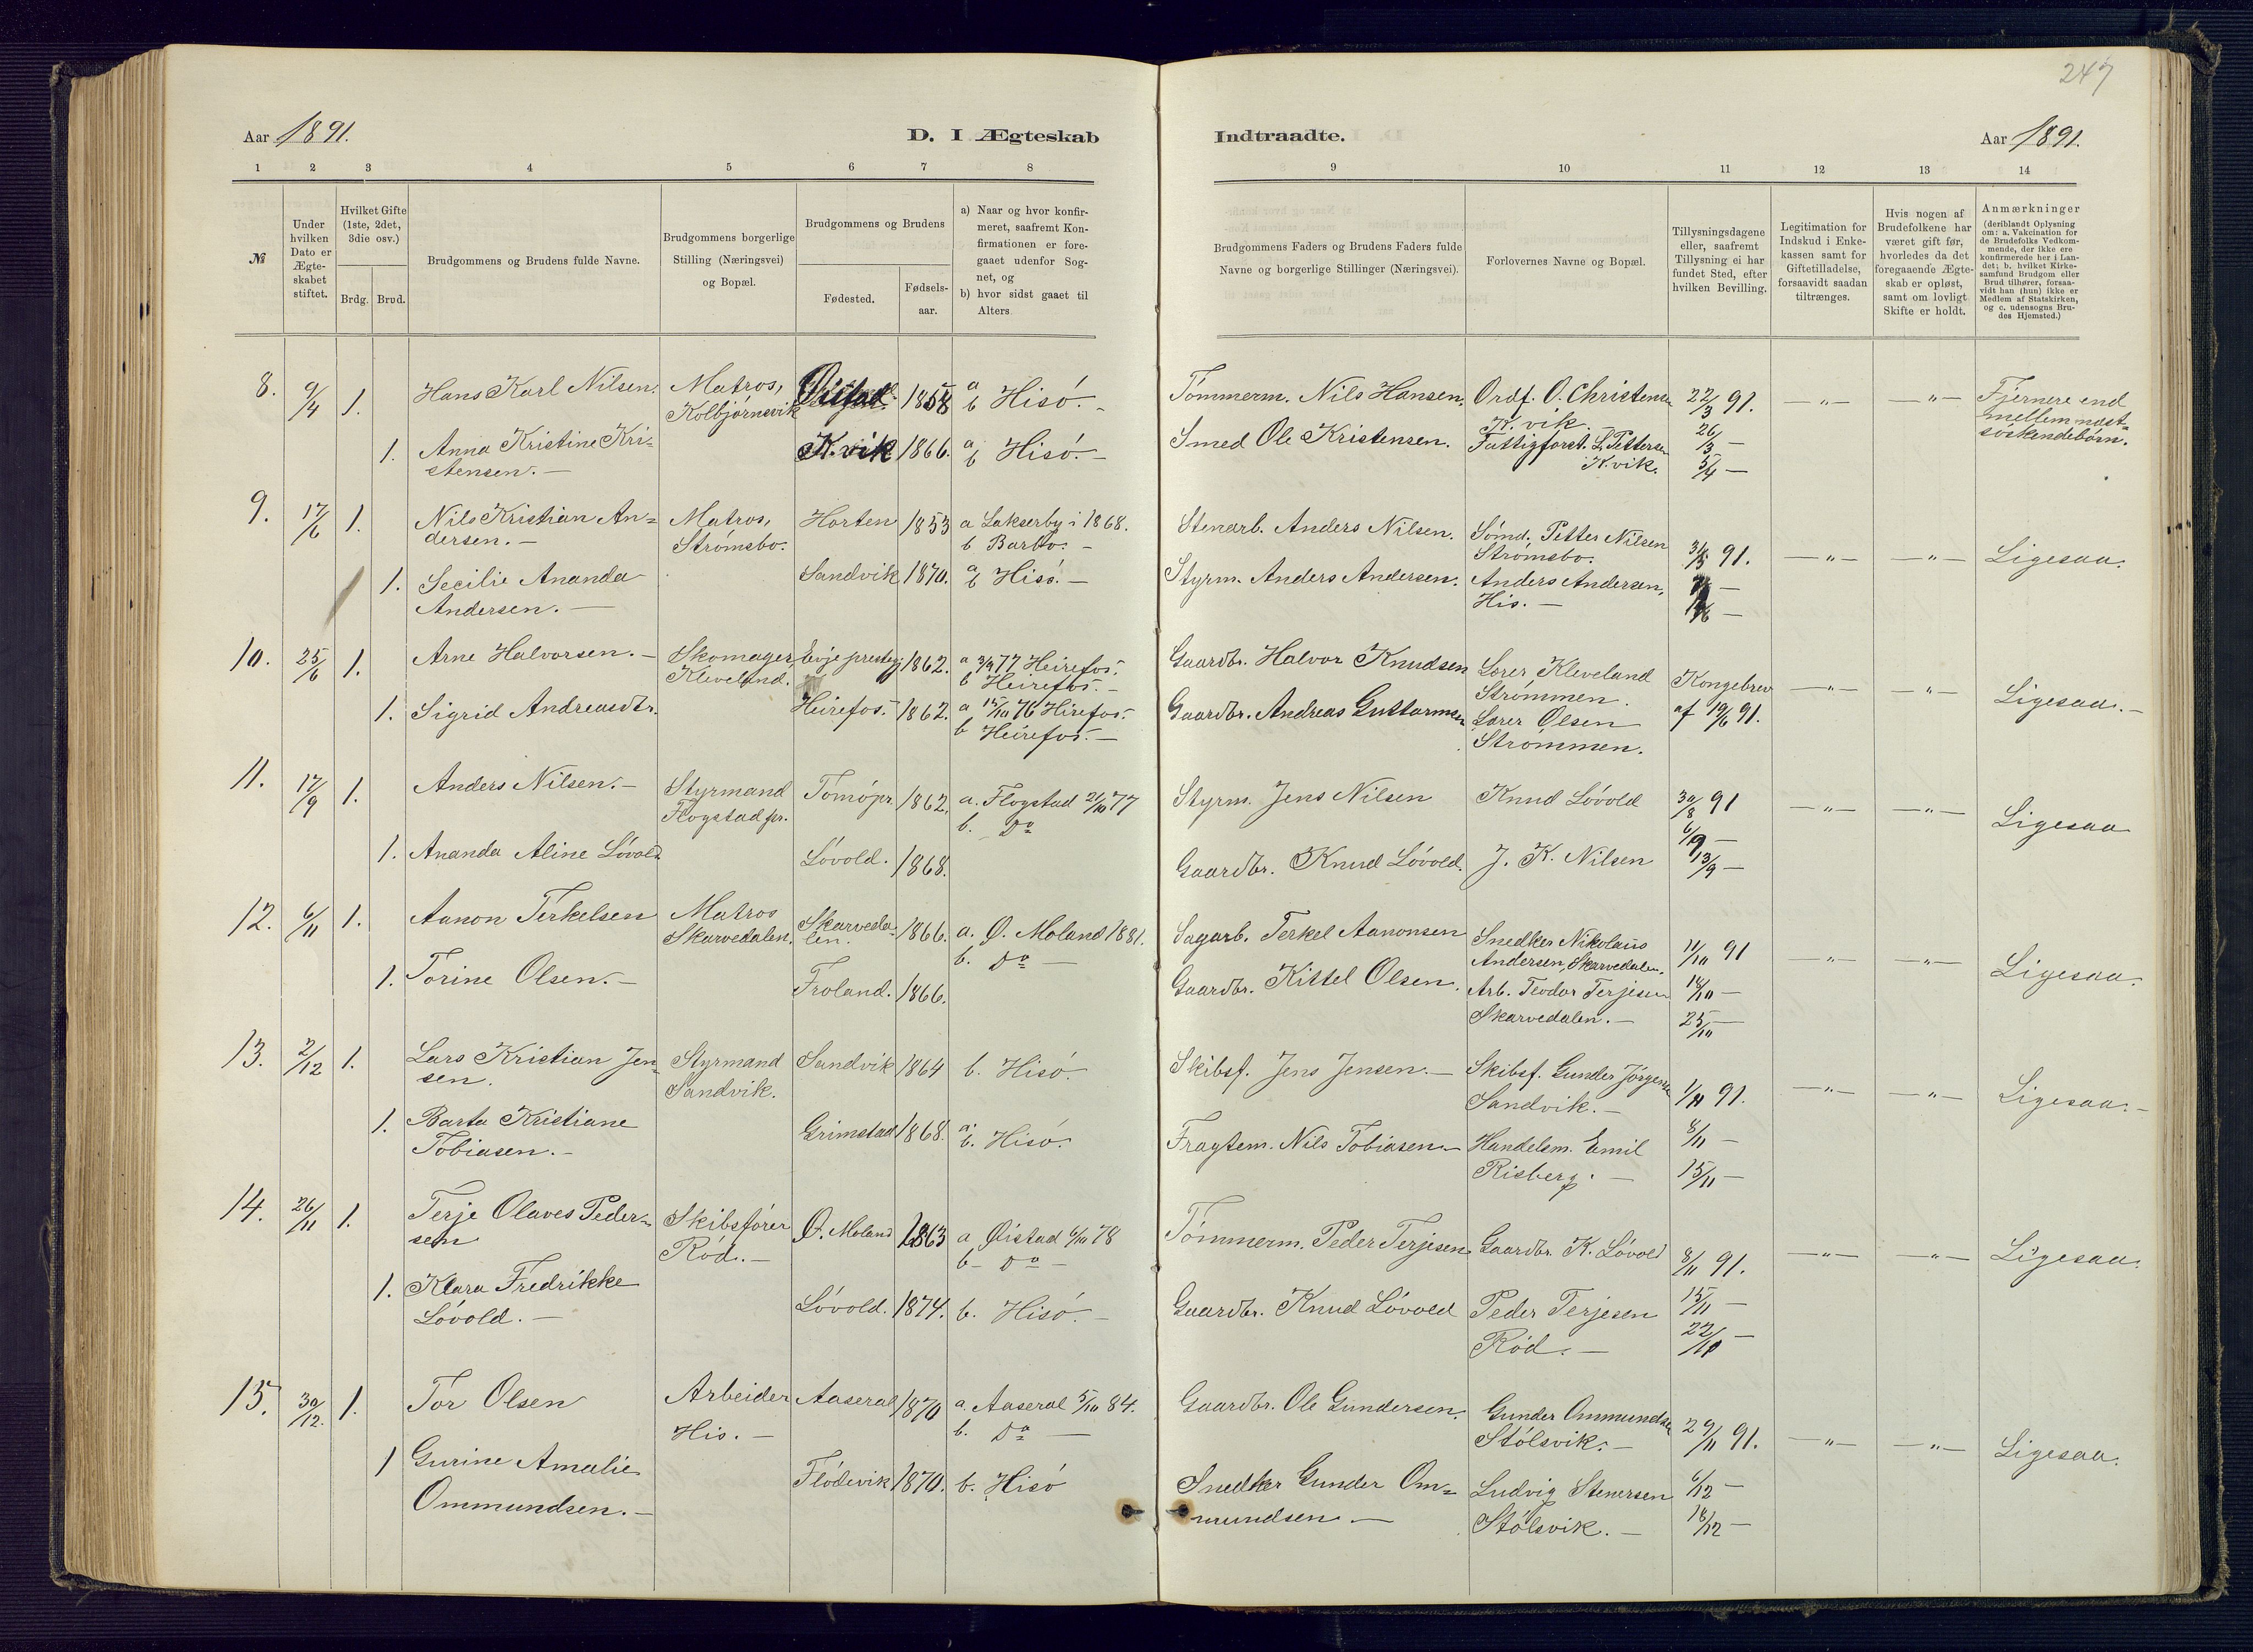 247
Aar 1891.
D. I Ægteskab
Indtraadte.
Aar 1891.
1 2 3 4 5 6 7 8
9 10 11 12 13 14
№
Under hvilken Dato er Ægteskabet stiftet.
Hvilket Gifte (1ste, 2det, 3die osv.)
Brdg. Brud.
Brudgommens og Brudens fulde Navne.
Brudgommens borgerlige Stilling (Næringsvei) og Bopæl.
Brudgommens og Brudens
Fødested.
Fødselsaar.
a) Naar og hvor konfirmeret, saafremt Konfirmationen er foregaaet udenfor Sognet, og
b) hvor sidst gaaet til Alters
Brudgommens Faders og Brudens Faders fulde Navne og borgerlige Stillinger (Næringsvei).
Forlovernes Navne og Bopæl.
Tillysningsdagene eller, saafremt Tillysning ei har fundet Sted, efter hvilken Bevilling.
Legitimation for Indskud i Enkekassen samt for Giftetilladelse, forsaavidt saadan tiltrænges.
Hvis nogen af Brudefolkene har været gift før, hvorledes da det foregaaende Ægteskab er opløst, samt om lovligt Skifte er holdt.
Anmærkninger (deriblandt Oplysning om: a. Vakcination for de Brudefolks Vedkommende, der ikke ere konfirmerede her i Landet; b. hvilket Kirkesamfund Brudgom eller Brud tilhører, forsaavidt han (hun) ikke er Medlem af Statskirken, og c. udensogns Brudes Hjemsted.)
8. 9/4 1. Hans Karl Nilsen. Matros, Kolbjørnsvik Øistad 1858 a b Hisö. -
Tömmerm. Nils Hansen. Ordf. O. Christensen K. vik. 22/3 91. —"— —"— Fjernere end mellem næstsöskendebörn.
1. Anna Kristine Kristensen. — K. vik 1866. a b Hisö. -
Smed Ole Kristensen. Fattigforst. L. Pettersen K. vik. 26/3 — 5/4 —
9. 17/6 1. Nils Kristian Andersen. — Matros, Strömsbo. Horten 1853 a Lakserby i 1868. b Barbo. -
Stenarb. Anders Nilsen. Sömd. Petter Nilsen Strömsbo. 31/5 91. —"— —"— Ligesaa.
1. Secilie Ananda Andersen. — Sandvik 1870. a b Hisö. —
Styrm. Anders Andersen. Anders Andersen, His. —
10. 25/6 1. Arne Halvorsen. — Skomager, Kleveland. Evje prestegj 1862. a 3/9 77 Heirefos. b Heirefos. —
Gaardbr. Halvor Knudsen Lorer Kleveland Strömmen. Kongebrev af 19/6 91. —"— —"— Ligesaa. —
1. Sigrid Andreasdtr. Heirefos. 1862. a 15/10 76 Hirefos. b Heirefos. —
Gaardbr. Andreas Guttormsen Lorer Olsen Strømmen.
11. 17/9 1. Anders Nilsen. — Styrmand Flogstad pr. Tomö pr. 1862. a. Flogstad 21/10 77 b. Do
Styrm. Jens Nilsen Knud Lövold 30/8 91 —"— —"— Ligesaa
1. Ananda Aline Lövold Lövold. 1868.
Gaardbr. Knud Lövold. J. K. Nilsen 6/9 — 13/9 —
12. 6/11 1. Aanon Terkelsen Matros Skarvedalen. Skarvedalen. 1866. a. Ø. Moland 1881. b. Do —
Sagarb. Terkel Aanonsen Snedker Nikolaus Andersen, Skarvedalen. 11/10 91 —"— —"— Ligesaa.
1. Torine Olsen. — Froland. 1866.
Gaardbr. Kittel Olsen. Arb. Teodor Terjesen Skarvedalen. — 18/10 — 25/10 —
13. 2/12 1. Lars Kristian Jensen. Styrmand Sandvik. Sandvik 1864 b. Hisö.
Skibsf. Jens Jensen. — Skibsf. Gunder Jörgensen Sandvik. — 1/11 91. —"— —"— Ligesaa. —
1. Barta Kristiane Tobiasen. — Grimstad 1868. a. b. Hisö.
Fragtem. Nils Tobiasen. — Handelsm. Emil Risberg. — 8/11 — 15/11 —
14. 26/11 1. Terje Olaves Pedersen Skibsförer Röd. — Ø. Moland 1863 a Øistad 6/10 78 b — Do —
Tömmerm. Peder Terjesen Gaardbr. K. Lövold 8/11 91. —"— —"— Ligesaa.
1. Klara Fredrikke Lövold. — Lövold. 1874. b. Hisö. —
Gaardbr. Knud Lövold Peder Terjesen Röd. — 15/11 — 22/11 —
15. 30/12. 1. Tor Olsen Arbeider His. — Aaseral 1870 a. Aaseral 5/10 84. b. Do —
Gaardbr. Ole Gundersen. Gunder Ommundsen Stölsvik. — 29/11 91. —"— —"— Ligesaa.
1 Gurine Amalie Ommundsen. — Flödevik 1870. b. Hisö
Snedker Gunder Ommundsen — Ludvig Stenersen Stölsvik. — 6/12 — 18/12 —